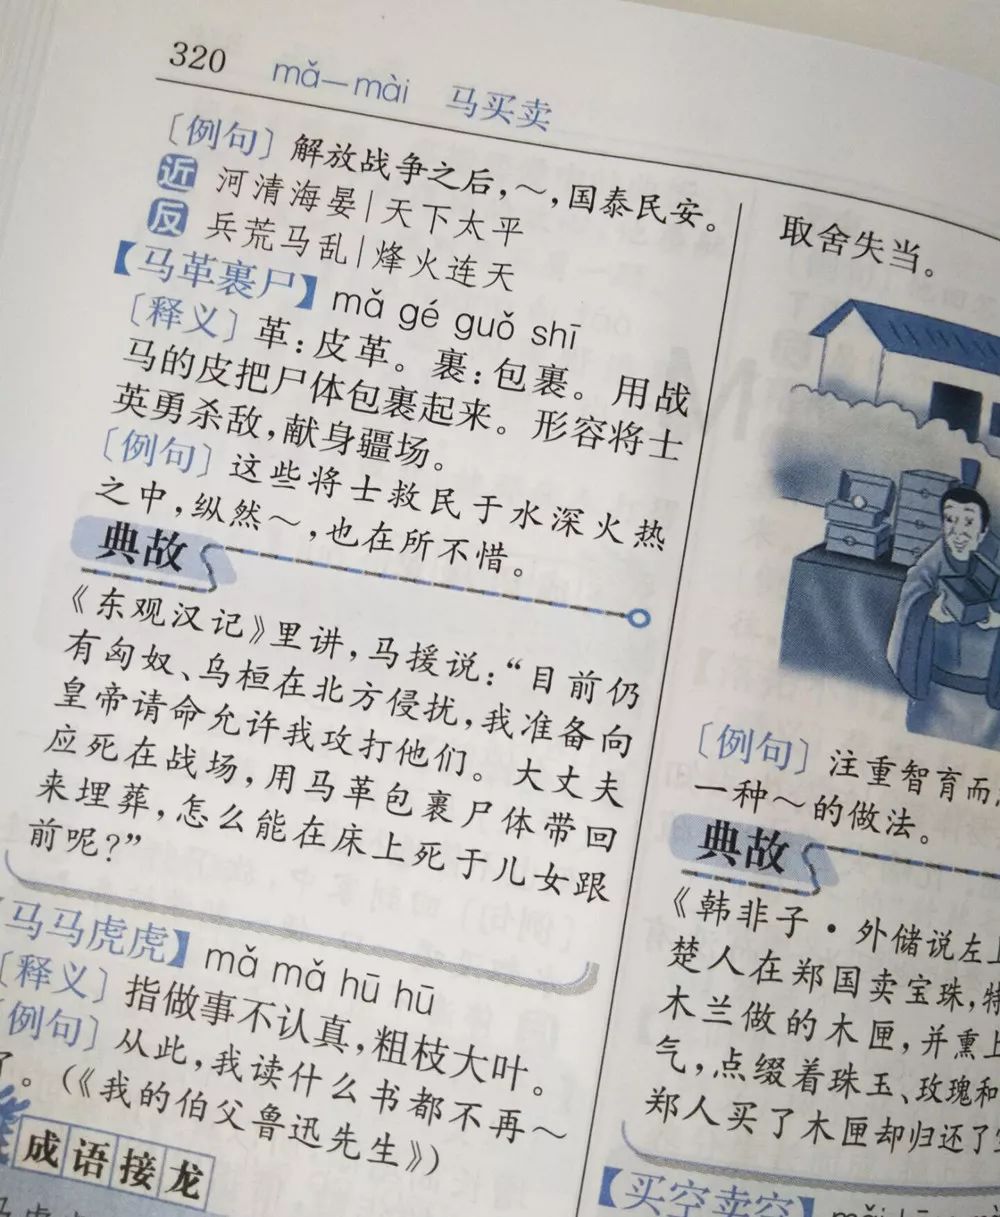 320 mǎ—mài 马买卖
〔例句〕解放战争之后，～，国泰民安。
近 河清海晏|天下太平
反 兵荒马乱|烽火连天
【马革裹尸】mǎ gé guǒ shī
〔释义〕革：皮革。裹：包裹。用战
马的皮把尸体包裹起来。形容将士
英勇杀敌，献身疆场。
〔例句〕这些将士救民于水深火热
之中，纵然～，也在所不惜。
典故
《东观汉记》里讲，马援说：“目前仍
有匈奴、乌桓在北方侵扰，我准备向
皇帝请命允许我攻打他们。大丈夫
应死在战场，用马革包裹尸体带回
来埋葬，怎么能在床上死于儿女跟
前呢？”
【马马虎虎】mǎ mǎ hū hū
〔释义〕指做事不认真，粗枝大叶。
〔例句〕从此，我读什么书都不再～
了。（《我的伯父鲁迅先生》）
成语接龙
取舍失当。
〔例句〕注重智育而
一种～的做法。
典故
《韩非子·外储说左上
楚人在郑国卖宝珠，特
木兰做的木匣，并熏上
气，点缀着珠玉、玫瑰和
郑人买了木匣却归还了
【买空卖空】